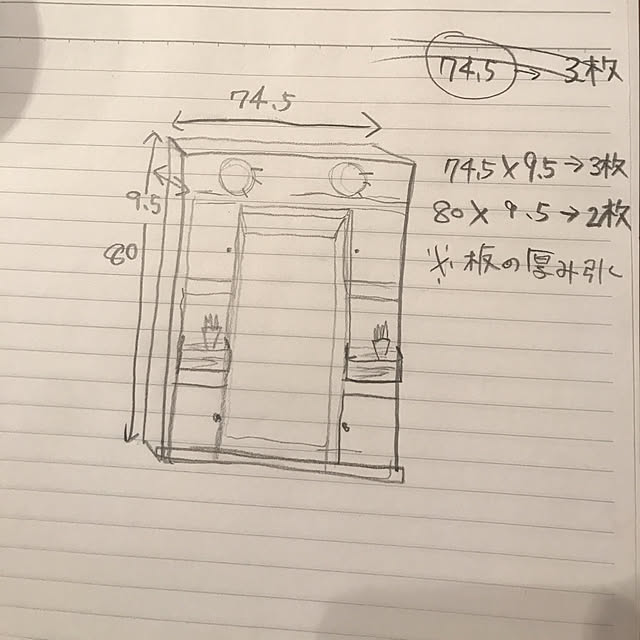 74.5 → 3枚
74.5
9.5
80
74.5×9.5→3枚
80×9.5→2枚
※板の厚み引く